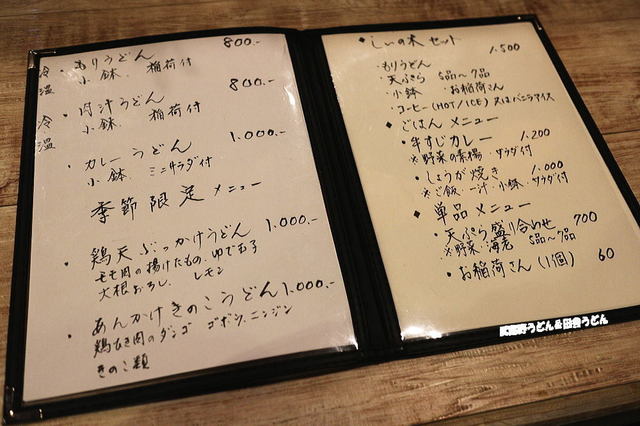 冷 ・もりうどん 800.-
温 小鉢. 稲荷付
冷 ・肉汁うどん 800.-
温 小鉢. 稲荷付
・カレーうどん 1.000.-
小鉢. ミニサラダ付
季節限定メニュー
・鶏天ぶっかけうどん 1.000.-
モモ肉の揚げたもの.ゆで玉子
大根おろし. レモン
・あんかけきのこうどん 1.000.-
鶏むき肉のダンゴ ゴボウ.ニンジン
きのこ類
◆しいの木セット 1.500
・もりうどん
・天ぷら 5品〜7品
・小鉢 ・お稲荷さん
・コーヒー(HOT/ICE)又はバニラアイス
◆ごはんメニュー
・牛すじカレー 1.200
※野菜の素揚・サラダ付
・しょうが焼き 1.000
※ご飯.一汁.小鉢.サラダ付
◆単品メニュー
・天ぷら盛り合わせ 700
※野菜.海老 5品〜7品
・お稲荷さん(1個) 60
武蔵野うどん&田舎うどん